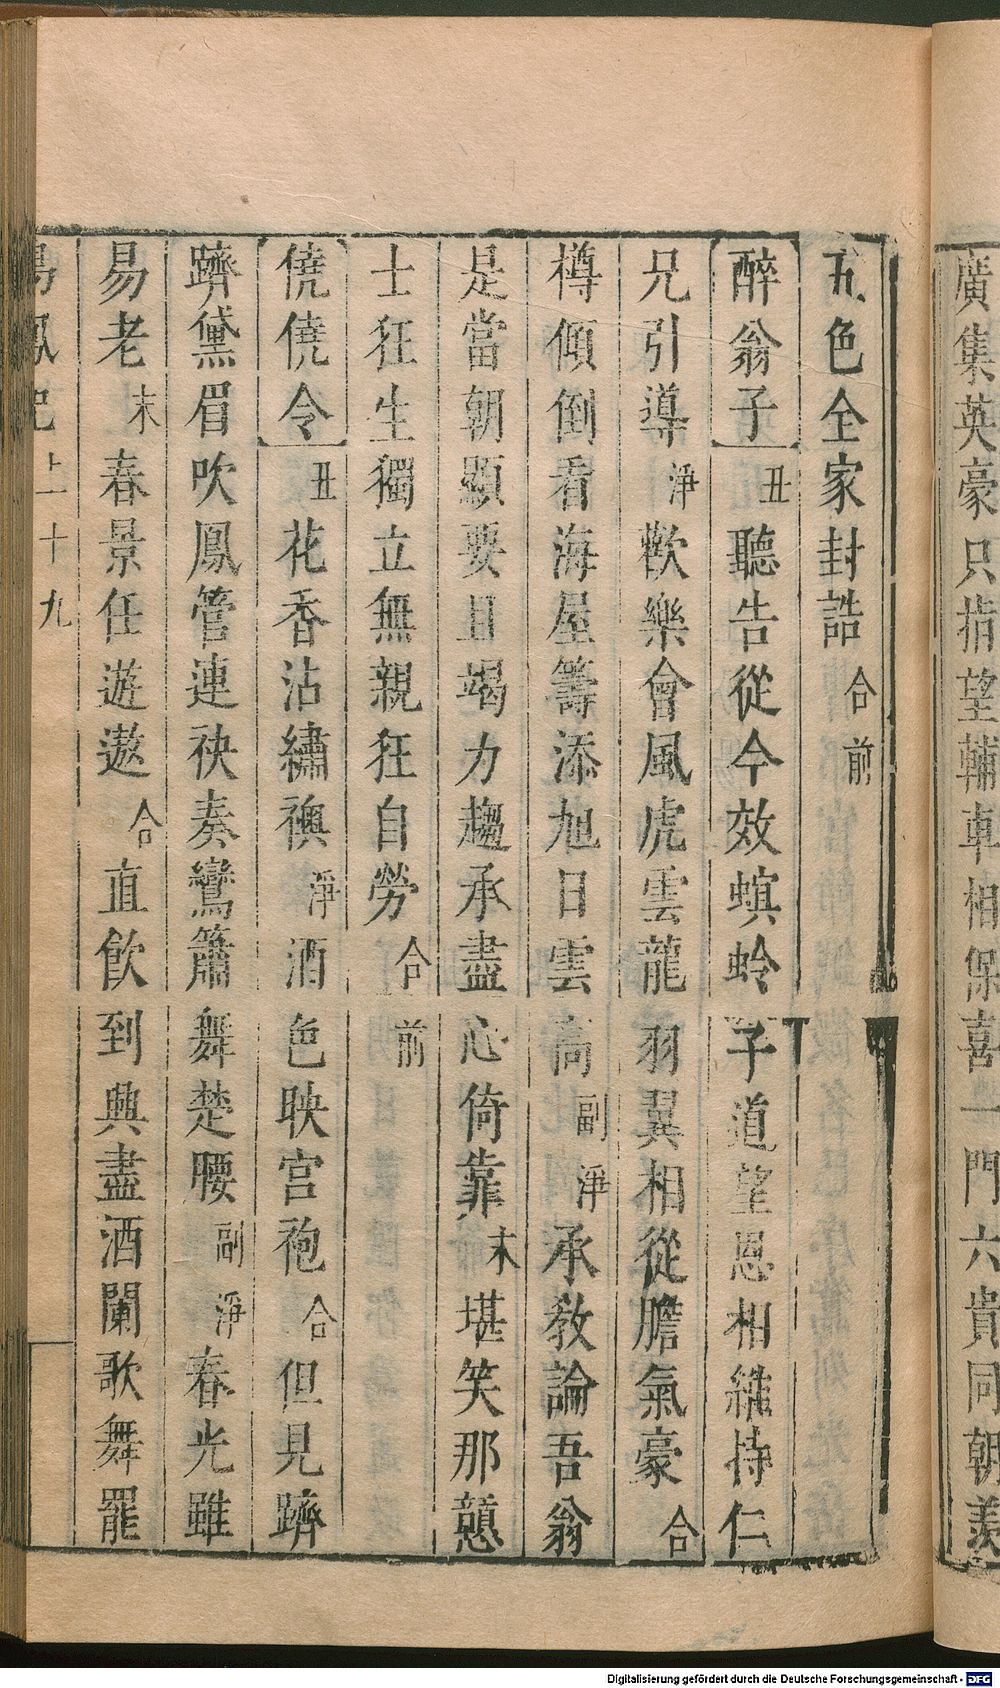 廣集英豪只指望輔車相保喜一門六貴同朝羨
五色全家封誥合前
醉翁子丑聽告從今效螟蛉子道望恩相維持仁
兄引導淨歡樂會風虎雲龍羽翼相從膽氣豪合
樽傾倒看海屋籌添旭日雲高副淨承教論吾翁
是當朝顯要且竭力趨承盡心倚靠末堪笑那戇
士狂生獨立無親狂自勞合前
僥僥令丑花香沾繡襖淨酒色映宮袍合但見躋
躋黛眉吹鳳管連袂奏鸞簫舞楚腰副淨春光雖
易老末春景任遊遨合直飲到興盡酒闌歌舞罷
鳳 上 十九
Digitalisierung gefördert durch die Deutsche Forschungsgemeinschaft - DFG